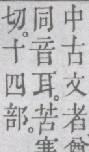 中古文者
同音耳。苦
切。十四部。